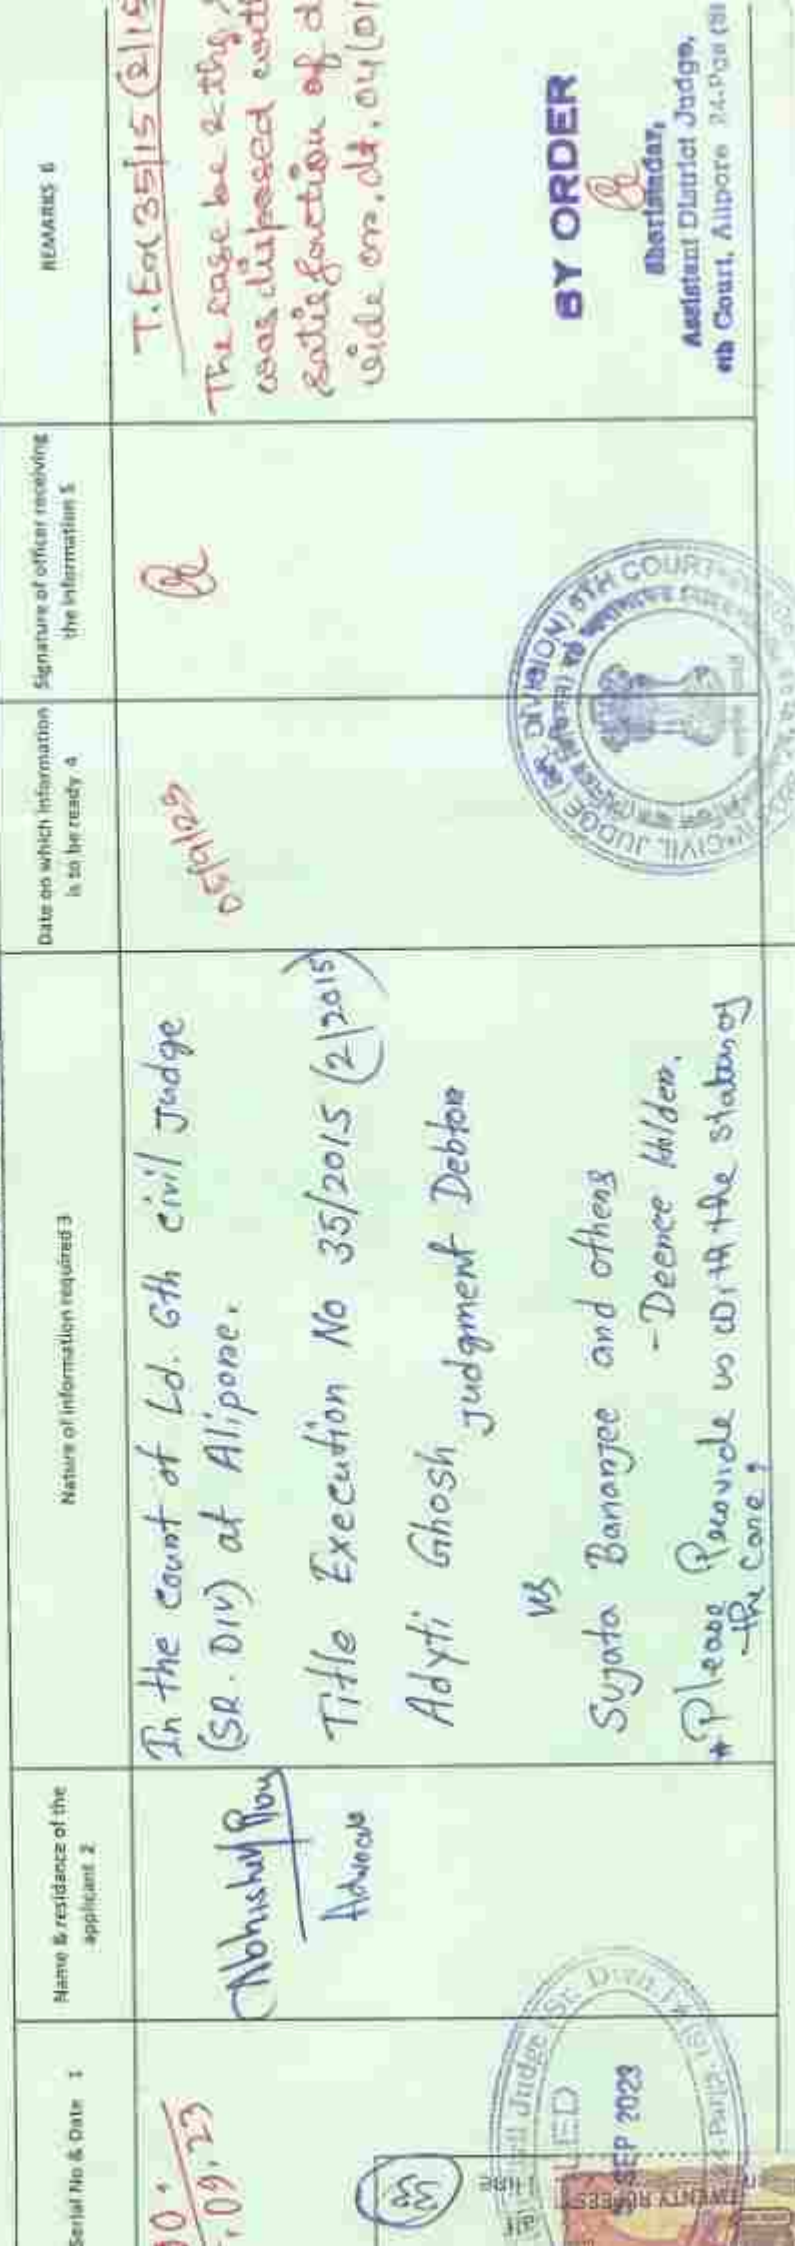 Serial No & Date 1
Name & residance of the
applicant 2
Nature of information required 3
Date on which information
is to be ready 4
Signature of officer receiving
the information 5
REMARKS 6
.09.23
Abhishek Roy
Advocate
In the Count of Ld. 6th civil Judge
(SR. DIV) at Alipore.
Title Execution No 35/2015 (2/2015)
Adyti Ghosh
Judgment Debtor
VS
Sujata Bananjee and others
- Decree Holder.
* Please Provide us with the status of
the Case,
05/9/23
T. Ex(35/15 (2/15
The case be &
was disposed
satisfaction of d
vide or. dt. 04/01
BY ORDER
Sheristadar,
Assistant District Judge,
6th Court, Alipore 24-Pgs (S)
CIVIL JUDGE (SR. DIVISION) 6TH COURT
Civil Judge (Sr. Divn.)
SEP 2023
TWENTY RUPEES